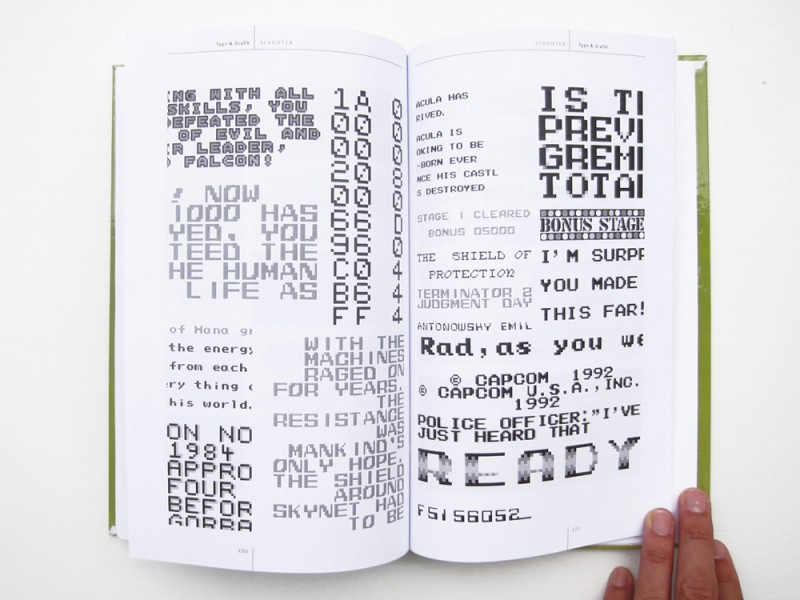 Type & Grafik
SCHRIFTEN
ING WITH ALL
SKILLS, YOU
DEFEATED THE
OF EVIL AND
R LEADER,
FALCON!
, NOW
1000 HAS
YED, YOU
TEED THE
HE HUMAN
LIFE AS
1A 0
00 0
00 0
20 8
00 0
66 D
96 0
C0 4
B6 4
FF 4
of Mana gr
the energy
from each
ry thing
his world.
WITH THE
MACHINES
RAGED ON
FOR YEARS.
THE
RESISTANCE
WAS
MANKIND'S
ONLY HOPE.
THE SHIELD
AROUND
SKYNET HAD
TO BE
ON NO
1984
APPRO
FOUR
BEFOR
GORRA
SCHRIFTEN
Type & Grafik
ACULA HAS
RIVED.
ACULA IS
OKING TO BE
-BORN EVER
NCE HIS CASTL
S DESTROYED
IS TI
PREVI
GREMI
TOTAl
STAGE 1 CLEARED
BONUS 05000
BONUS STAGE
THE SHIELD OF
PROTECTION
TERMINATOR 2
JUDGMENT DAY
ANTONOWSKY EMIL
I'M SURPR
YOU MADE
THIS FAR!
Rad, as you we
© CAPCOM 1992
© CAPCOM U.S.A., INC.
1992
POLICE OFFICER:"I'VE
JUST HEARD THAT
READY
FS156052_